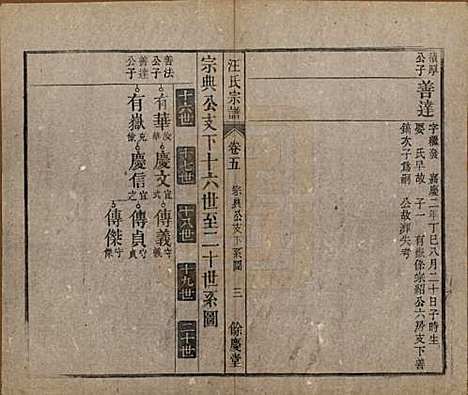 善達
字繼發 嘉慶二年丁巳八月二十日子時生
晏氏早故 子一 有嶽係宗紹公六房支下善
鎮次子為嗣 公故葬失考
汪氏宗譜 卷五 宗典公支下系圖 三 餘慶堂
宗典公支下十六世至二十世系圖
十六世 十七世 十八世 十九世 二十世
善法公子 有華 慶文 傳義
善達公子 有嶽 慶信 傳貞
傳傑